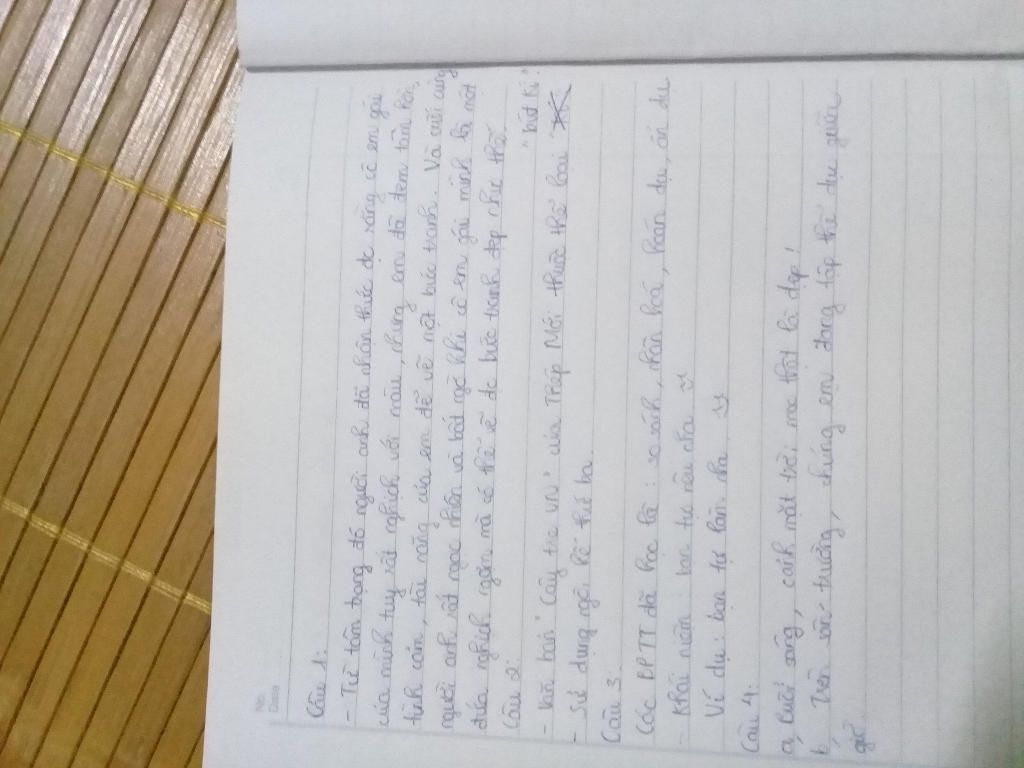 No.
Date
Câu 1:
- Từ tâm trạng đó người anh đã nhận thức đc rằng cô em gái
của mình tuy rất nghịch với màu, nhưng em đã đem tâm hồn,
tình cảm, tài năng của em để vẽ một bức tranh. Và cuối cùng
người anh rất ngạc nhiên và bất ngờ khi cô em gái mình là một
đứa nghịch ngợm mà có thể vẽ đc bức tranh đẹp như thế.
Câu 2:
- Văn bản " Cây tre VN " của Thép Mới thuộc thể loại "bút kí".
- Sử dụng ngôi kể thứ ba.
Câu 3.
Các BPTT đã học là : so sánh, nhân hoá, hoán dụ, ẩn dụ
- Khái niệm bạn tự nêu nha
Ví dụ: bạn tự làm nha.
Câu 4:
a, Buổi sáng, cảnh mặt trời mọc thật là đẹp!
b, Trên sân trường, chúng em đang tập thể dục giữa
giờ